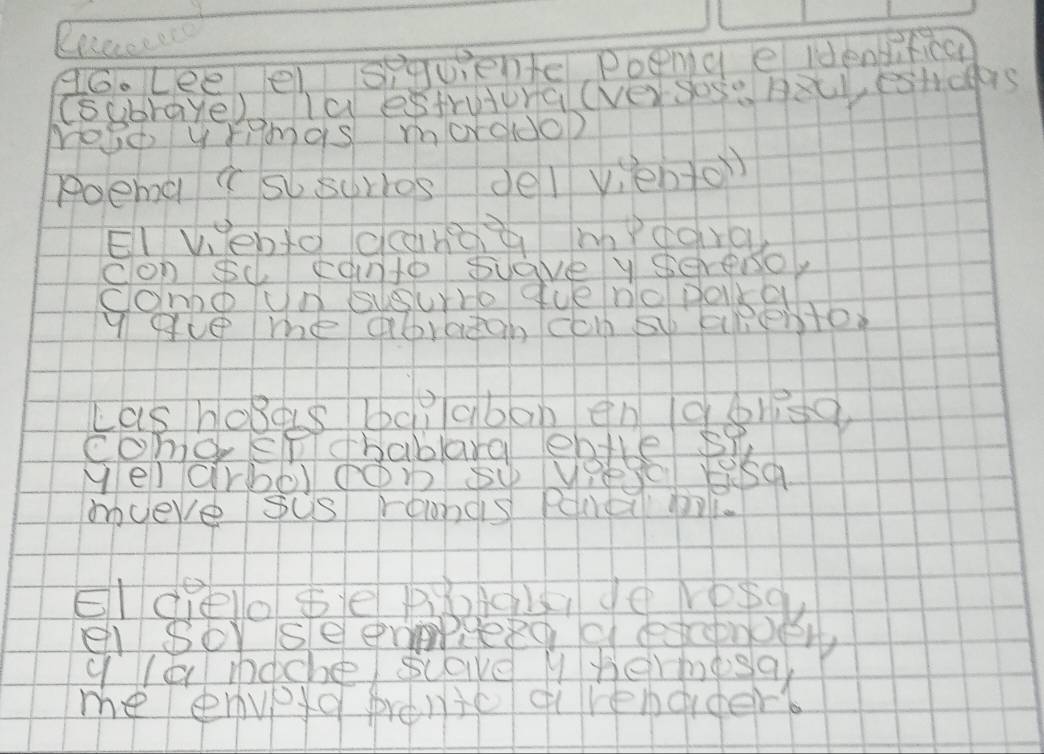 AG. Lee el siguiente Poema e identifica
(subraye) la estrutura (versos: Azul, estrofas
rojo y rimas morado)
Poema "susurros del viento"
El viento acaricia mi cara,
con su canto suave y sereno,
como un susurro que no para
y que me abrazan con su aliento.
Las hojas bailaban en la brisa,
como si hablara entre sí,
y el arbol con su viejo risa
mueve sus ramas para mi.
El cielo se pinta de rosa,
el sol se empieza a esconder,
y la noche, suave y hermosa,
me envita pronto a renacer.